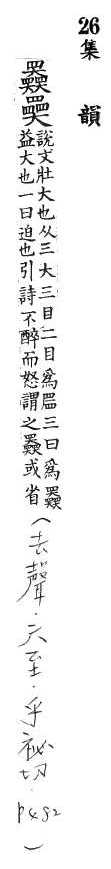 26集韻
奰𡚤說文壯大也从三大三目二目爲𥄎三目爲𥇛
益大也一曰迫也引詩不醉而怒謂之奰或省
(去聲．六至．平祕切．P482)